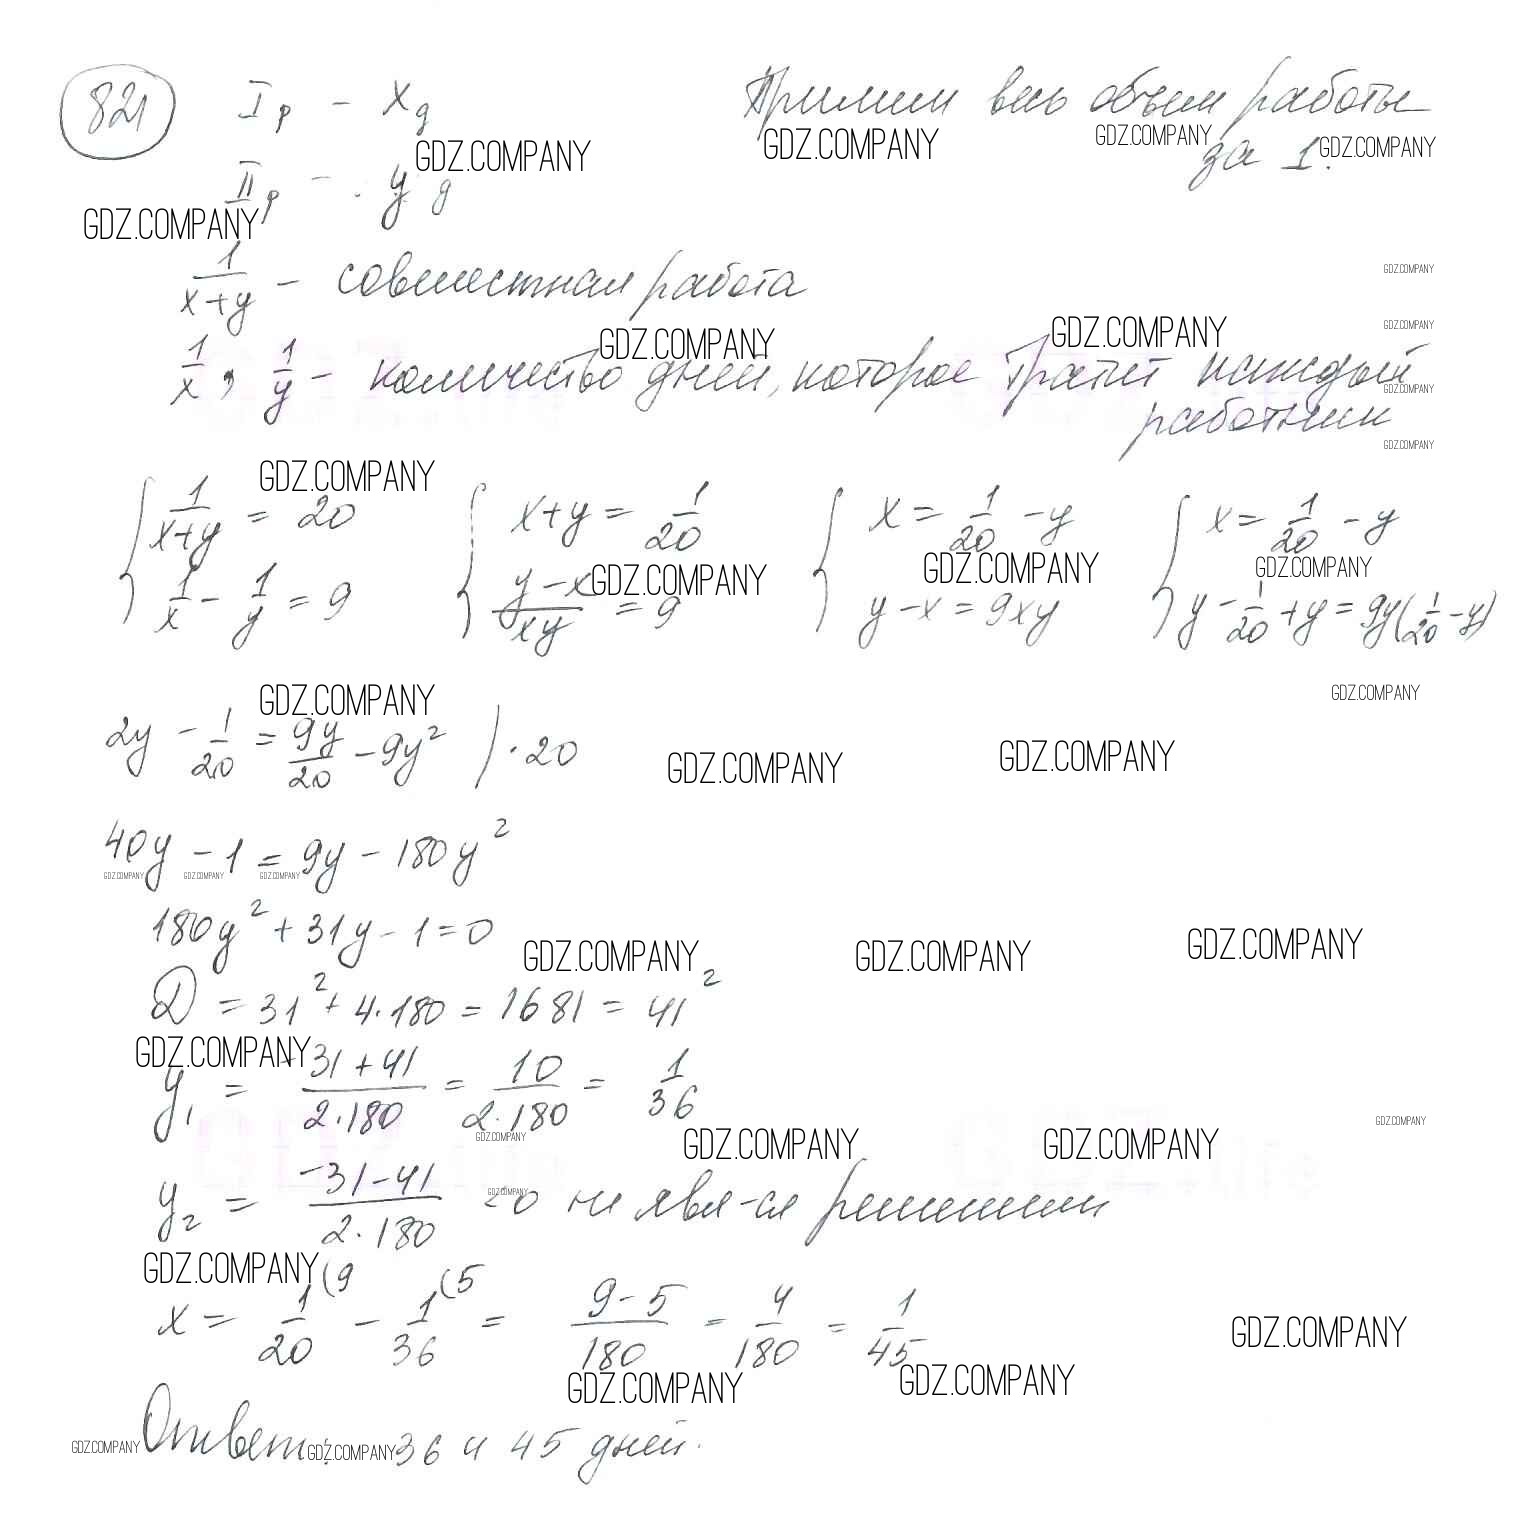 821 I р – x д Примим весь объем работы
за 1.
II р – y д
1/(x+y) – совместная работа
1/x, 1/y – количество дней, которое тратит каждый
работник
{ 1/(x+y) = 20 { x+y = 1/20 { x = 1/20 – y { x = 1/20 – y
1/x – 1/y = 9 (y–x)/(xy) = 9 y – x = 9xy y – 1/20 + y = 9y(1/20 – y)
2y – 1/20 = 9y/20 – 9y² | · 20
40y – 1 = 9y – 180y²
180y² + 31y – 1 = 0
D = 31² + 4·180 = 1681 = 41²
y₁ = (–31+41)/(2·180) = 10/(2·180) = 1/36
y₂ = (–31–41)/(2·180) <0 не явл-ся решением
x = 1/20 (9 – 1/36 (5 = (9–5)/180 = 4/180 = 1/45
Ответ: 36 и 45 дней.
GDZ.COMPANY